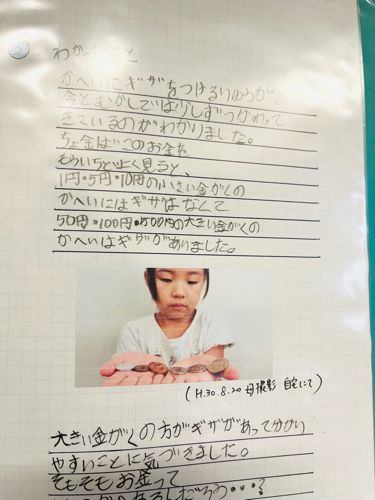 わかったこと
かへいにギザをつけるりゆうが、
今とむかしでは少しずつかわって
きているのがわかりました。
ちょ金ばこのお金を
もういちどよく見ると、
1円・5円・10円の小さい金がくの
かへいにはギザはなくて
50円・100円・500円の大きい金がくの
かへいはギザがありました。
(H.30.8.20 母撮影 自宅にて)
大きい金がくの方がギザがあって分かり
やすいことに気づきました。
そもそもお金って